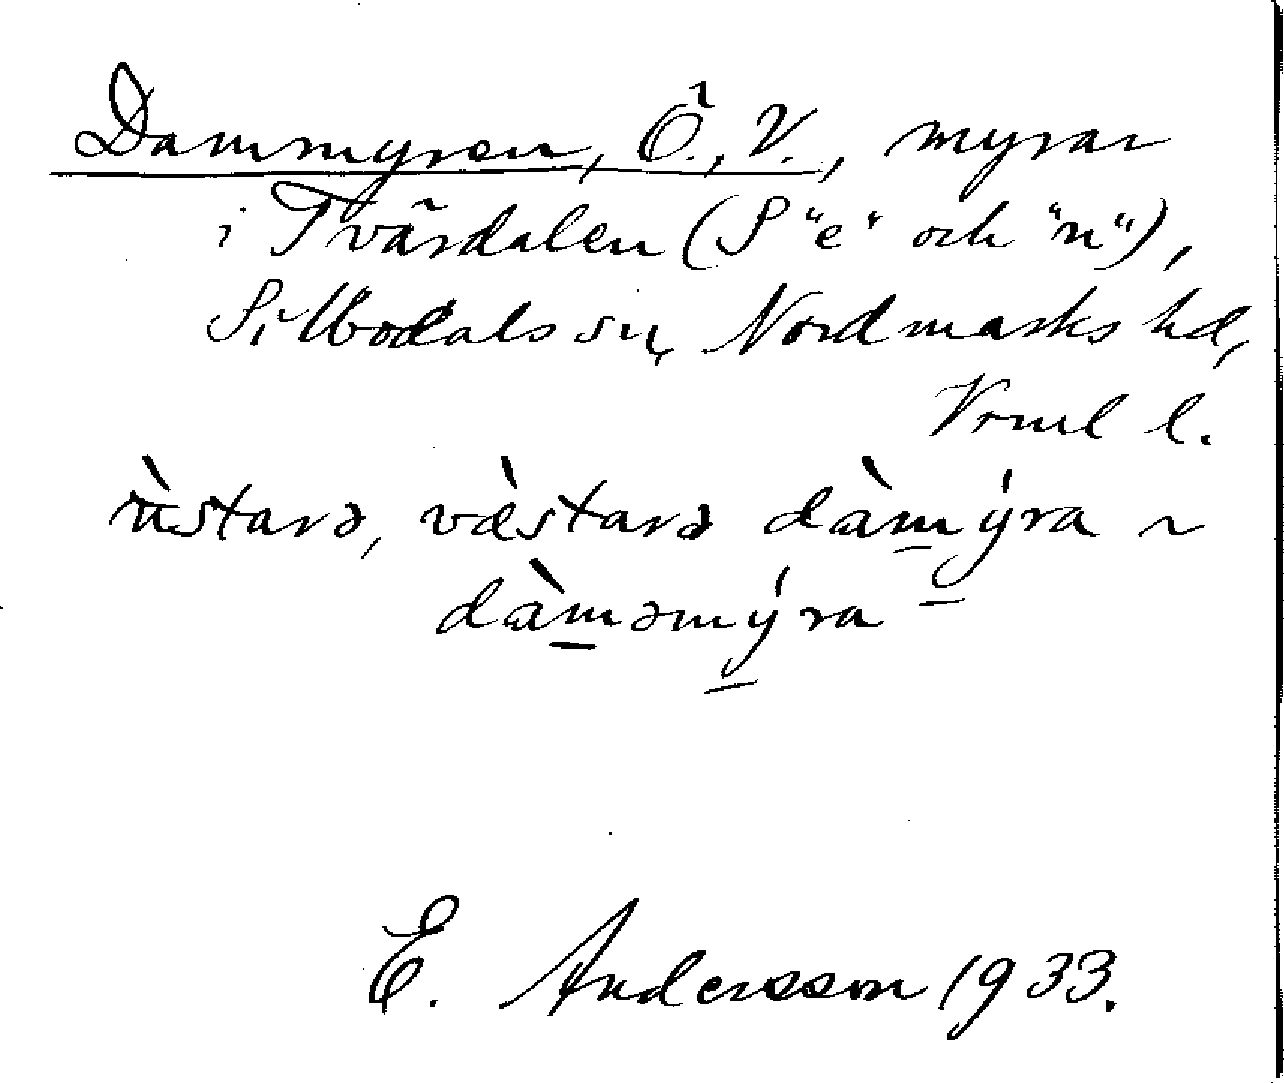 Dammyren, Ö., V., myrar
i Tvärdalen (S "e" och "n"),
Silbodals sn, Nordmarks hd,
Vrml l.
ùstarə, væ̀starə dàm̲ý̲ra ~
dàm̲əmý̲ra
E. Andersson 1933.